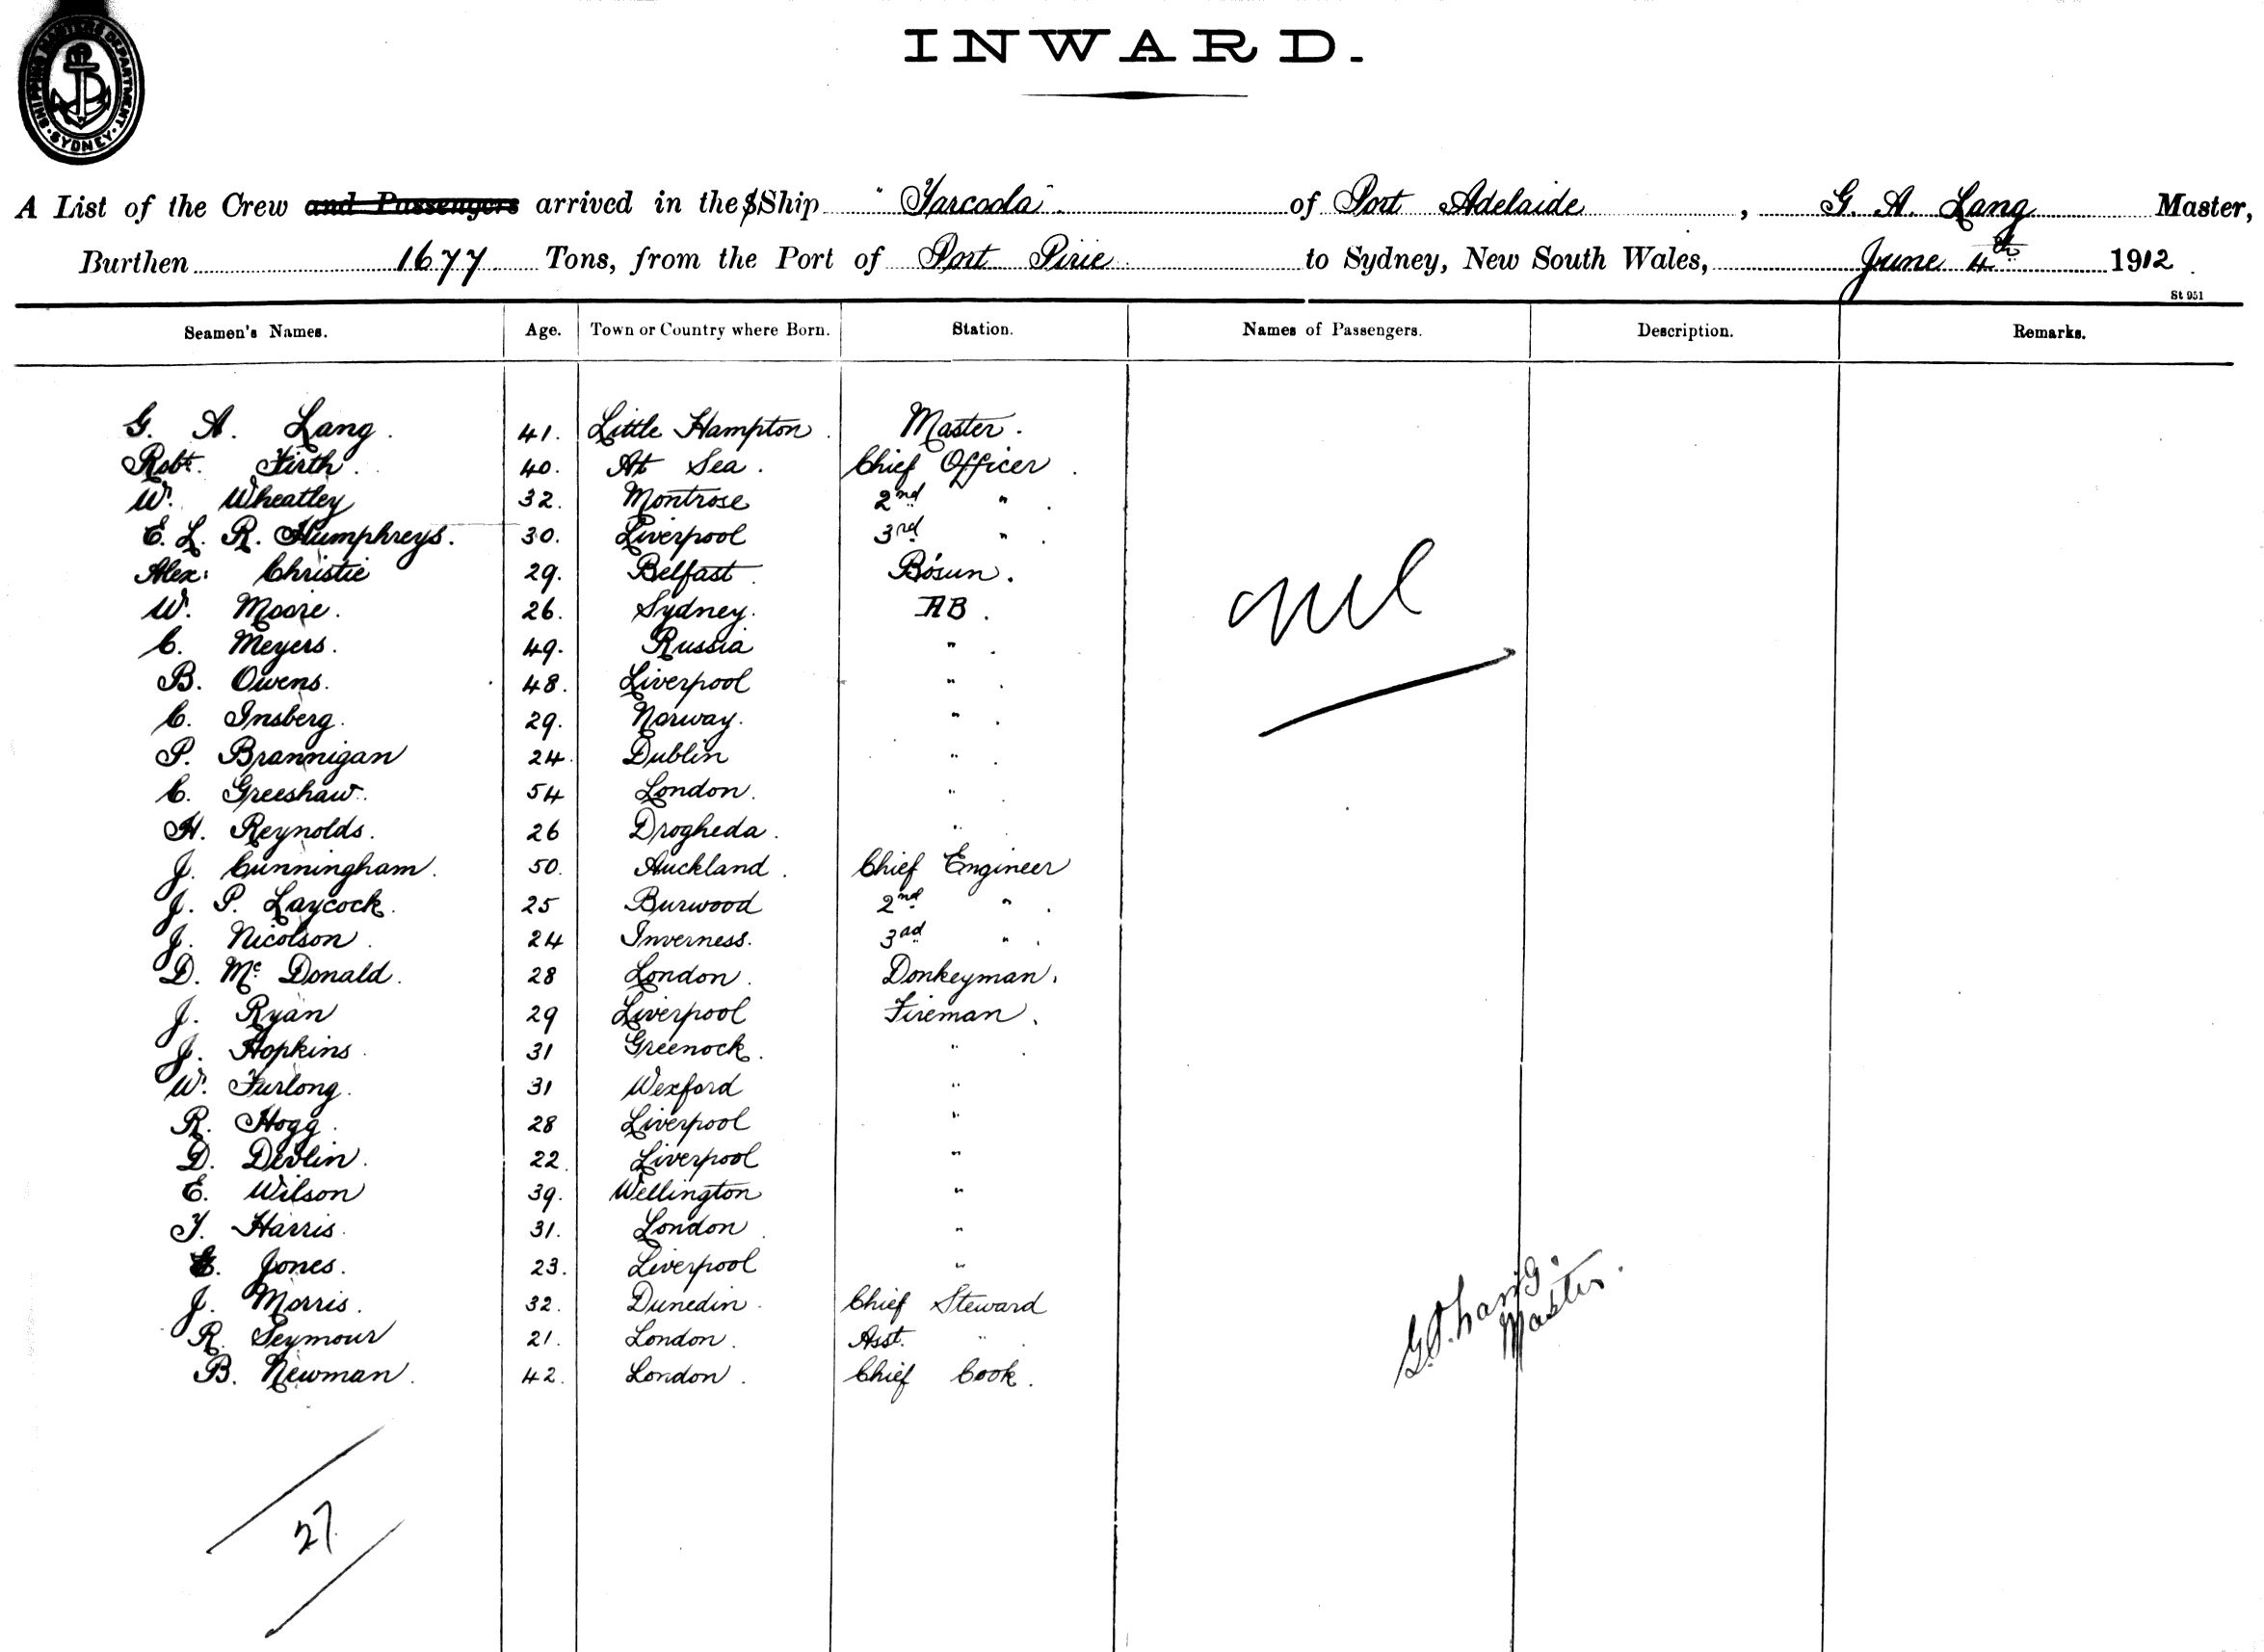 SHIPPING MASTERS DEPARTMENT · SYDNEY ·
INWARD.
A List of the Crew and Passengers arrived in the $Ship "Yarcoola" of Port Adelaide, G. A. Lang Master,
Burthen 1677 Tons, from the Port of Port Pirie to Sydney, New South Wales, June 4th 1912.
St 951
Seamen's Names. Age. Town or Country where Born. Station. Names of Passengers. Description. Remarks.
G. A. Lang. 41. Little Hampton. Master.
Robt. Firth. 40. At Sea. Chief Officer.
W. Wheatley 32. Montrose 2nd " .
E. L. R. Humphreys. 30. Liverpool 3rd " .
Alex: Christie 29. Belfast. Bosun.
W. Moore. 26. Sydney. AB.
C. Meyers. 49. Russia " .
nil
B. Owens. 48. Liverpool " .
C. Insberg. 29. Norway. " .
P. Brannigan 24. Dublin " .
C. Greeshaw. 54 London. " .
H. Reynolds. 26 Drogheda. " .
J. Cunningham. 50. Auckland. Chief Engineer
J. P. Laycock. 25 Burwood 2nd " .
J. Nicolson. 24 Inverness. 3rd " .
D. Mc Donald. 28 London. Donkeyman.
J. Ryan 29 Liverpool Fireman.
J. Hopkins. 31 Greenock. " .
W. Furlong. 31 Wexford "
R. Hogg. 28 Liverpool "
D. Devlin. 22. Liverpool "
E. Wilson 39. Wellington "
T. Harris. 31. London. "
E. Jones. 23. Liverpool "
J. Morris. 32. Dunedin. Chief Steward
R. Seymour 21. London. Asst. " .
B. Newman. 42. London. Chief Cook.
G. A. Lang.
Master.
27